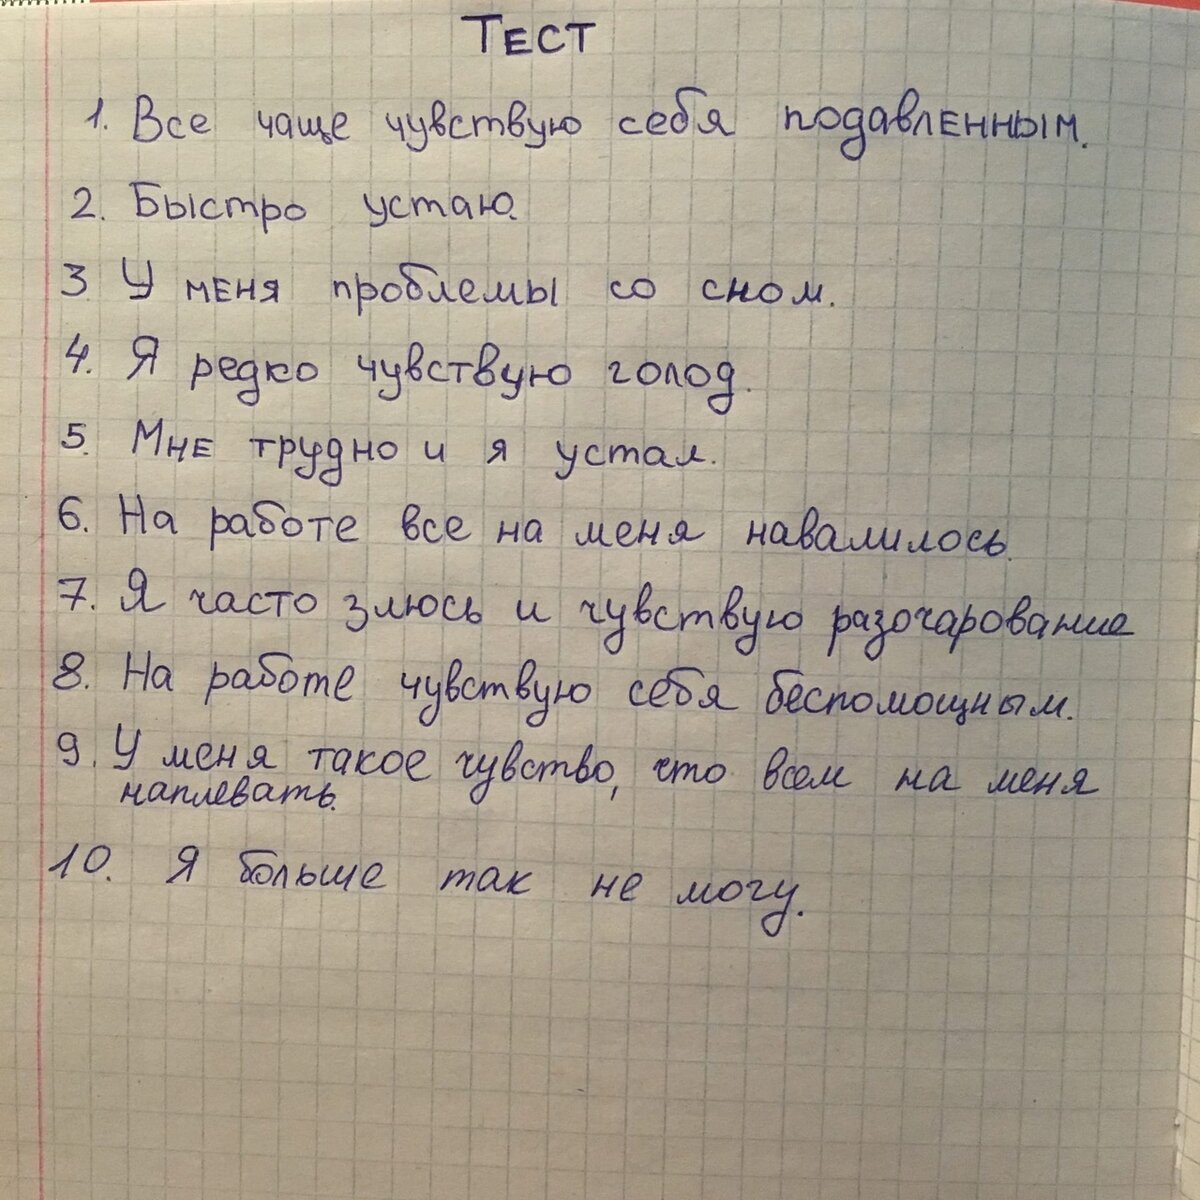 Тест
1. Все чаще чувствую себя подавленным.
2. Быстро устаю.
3 У меня проблемы со сном.
4. Я редко чувствую голод.
5. Мне трудно и я устал.
6. На работе все на меня навалилось.
7. Я часто злюсь и чувствую разочарование
8. На работе чувствую себя беспомощным.
9. У меня такое чувство, что всем на меня
наплевать.
10. Я больше так не могу.